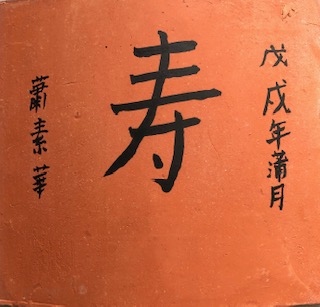 戊戌年蒲月
寿
蕭素華